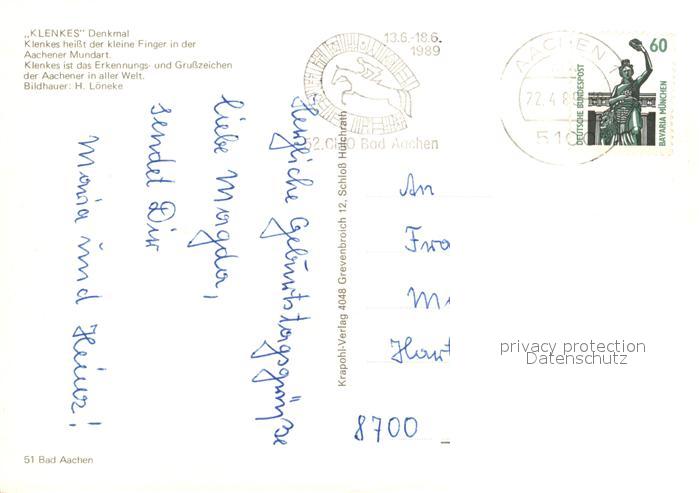 „KLENKES" Denkmal
Klenkes heißt der kleine Finger in der
Aachener Mundart.
Klenkes ist das Erkennungs- und Grußzeichen
der Aachener in aller Welt.
Bildhauer: H. Löneke
13.6.-18.6.
1989
52.CHIO Bad Aachen
AACHEN 1
22.4.8
510
60
DEUTSCHE BUNDESPOST
BAVARIA MÜNCHEN
Herzliche Geburtstagsgrüße
liebe Magda,
sendet Dir
Maria und Heinz!
Krapohl-Verlag 4048 Grevenbroich 12, Schloß Hülchrath
An
Fra
M
8700
privacy protection
Datenschutz
51 Bad Aachen